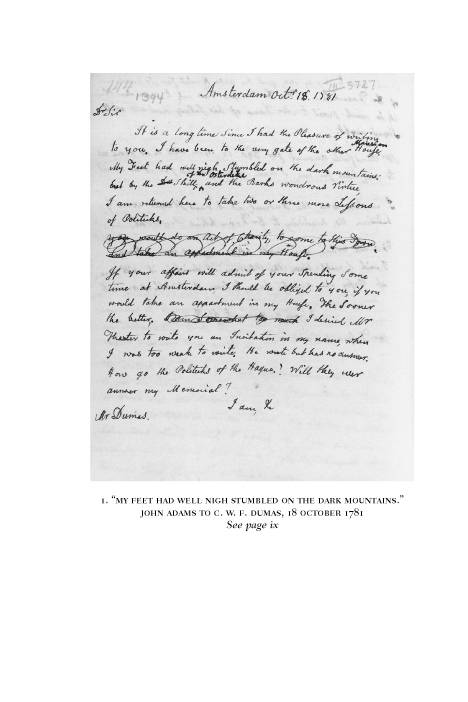 144
1394
III 3727
Amsterdam Octr. 18. 1781
Dr Sir
It is a long time Since I had the Pleasure of writing
to you. I have been to the very gate of the other House,
Mansion
My Feet had well nigh Stumbled on the dark mountains;
of Dr Osterdike
but by the Skill, and the Barks wondrous Virtue,
I am returned here to take two or three more Lessons
of Politicks,
you would do an Act of Charity, to come to this Town.
and take an appartment in my House.
If your affairs will admit of your Spending Some
time at Amsterdam I should be obliged to you, if you
would take an appartment in my House. The Sooner
the better. I am Somewhat too much I desired Mr
Thaxter to write you an Invitation in my name, when
I was too weak to write. He wrote but has no answer.
How go the Politicks of the Hague? Will they ever
answer my Memorial?
I am, &c
Mr Dumas.
1. “MY FEET HAD WELL NIGH STUMBLED ON THE DARK MOUNTAINS.”
JOHN ADAMS TO C. W. F. DUMAS, 18 OCTOBER 1781
See page ix